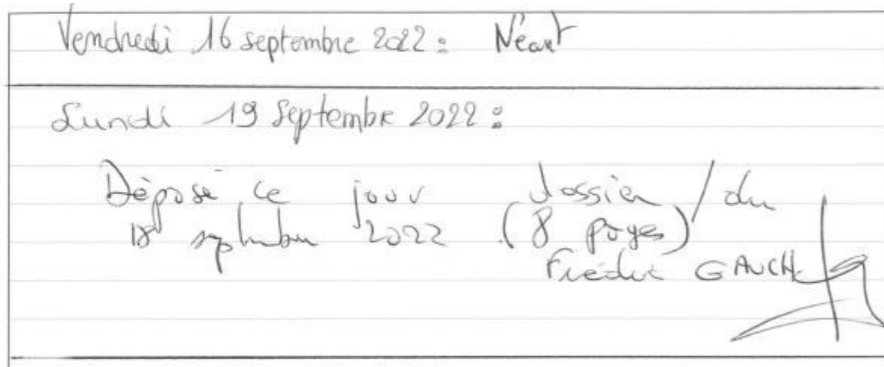 Vendredi 16 septembre 2022 : Néant
Lundi 19 Septembre 2022 :
Déposé ce jour dossier / du
18 septembre 2022 (8 pages)
Frédéric GAUCH